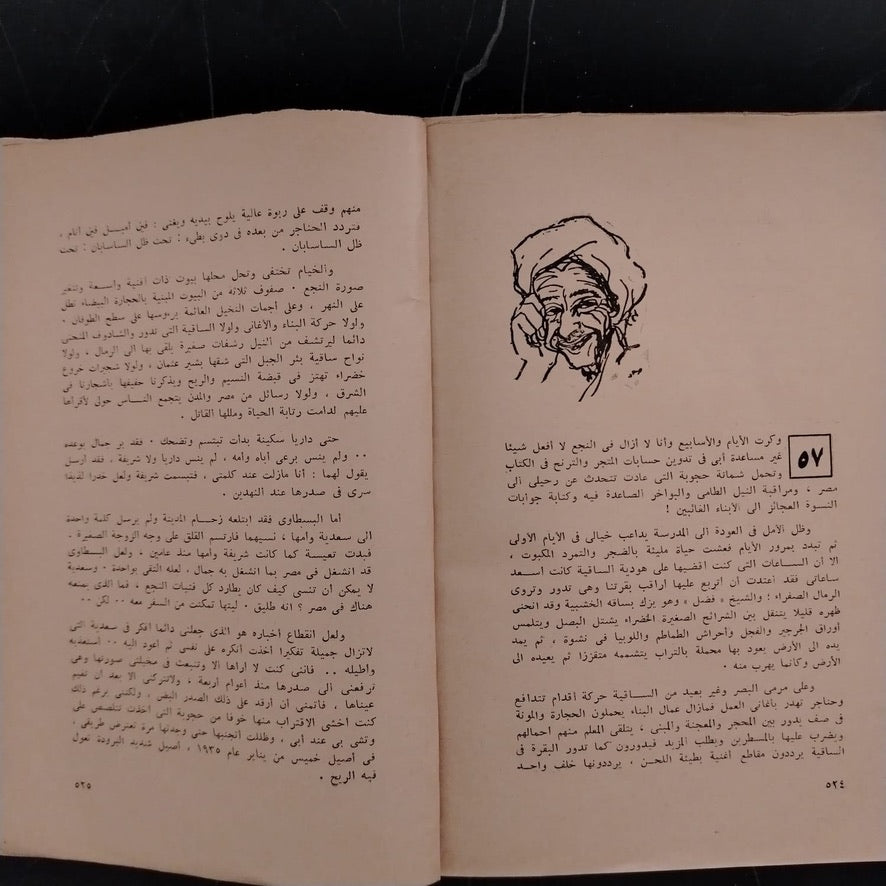 ٥٧
وكرت الأيام والأسابيع وأنا لا أزال فى النجع لا أفعل شيئا
غير مساعدة أبى فى تدوين حسابات المتجر والترنح فى الكتاب
وتحمل شماتة حجوبة التى عادت تتحدث عن رحيلى الى
مصر ، ومراقبة النيل الطامى والبواخر الصاعدة فيه وكتابة جوابات
النسوة العجائز الى الأبناء الغائبين !
وظل الأمل فى العودة الى المدرسة يداعب خيالى فى الأيام الأولى
ثم تبدد بمرور الأيام فعشت حياة مليئة بالضجر والتمرد المكبوت ،
الا أن الساعات التى كنت اقضيها على هودية الساقية كانت أسعد
ساعاتى فقد اعتدت أن أتربع عليها أراقب بقرتنا وهى تدور وتروى
الرمال الصفراء ! والشيخ « فضل » وهو يزك بساقه الخشبية وقد انحنى
ظهره قليلا يتنقل بين الشرائح الصغيرة الخضراء يشتل البصل ويتلمس
أوراق الجرجير والفجل وأحراش الطماطم واللوبيا فى نشوة ، ثم يمد
يده الى الأرض يعود بها محملة بالتراب يتشممه متقززا ثم يعيده الى
الأرض وكأنما يهرب منه .
وعلى مرمى البصر وغير بعيد من الساقية حركة أقدام تتدافع
وحناجر تهدر بأغانى العمل فمازال عمال البناء يحملون الحجارة والمونة
فى صف يدور بين المحجر والمعجنة والمبنى ، يتلقى المعلم منهم أحمالهم
ويضرب عليها بالمسطرين ويطلب المزيد فيدورون كما تدور البقرة فى
الساقية يرددون مقاطع أغنية بطيئة اللحن ، يرددونها خلف واحد
٥٢٤
منهم وقف على ربوة عالية يلوح بيديه ويغنى : فين أميل فين أنام ،
فتردد الحناجر من بعده فى دوى بطىء : تحت ظل الساسابان : تحت
ظل الساسابان .
والخيام تختفى وتحل محلها بيوت ذات أفنية واسعة وتتغير
صورة النجع . صفوف ثلاثة من البيوت المبنية بالحجارة البيضاء تطل
على النهر ، وعلى أجمات النخيل العائمة برءوسها على سطح الطوفان .
ولولا حركة البناء والأغانى ولولا الساقية التى تدور والشادوف المنحنى
دائما ليرتشف من النيل رشفات صغيرة يلقى بها الى الرمال ، ولولا
نواح ساقية بئر الجبل التى شقها بشير عثمان ، ولولا شجيرات خروع
خضراء تهتز فى قبضة النسيم والريح ويذكرنا حفيفها بأشجارنا فى
الشرق ، ولولا رسائل من مصر والمدن يتجمع الناس حولى لأقرأها
عليهم لدامت رتابة الحياة ومللها القاتل .
حتى داريا سكينة بدأت تبتسم وتضحك . فقد بر جمال بوعده
.. ولم ينس برعى أباه وأمه ، لم ينس داريا ولا شريفة . فقد أرسل
يقول لهما : أنا مازلت عند كلمتى ، فتبسمت شريفة ولعل خدرا لذيذا
سرى فى صدرها عند النهدين .
أما البسطاوى فقد ابتلعه زحام المدينة ولم يرسل كلمة واحدة
الى سعدية وأمها ، نسيهما فارتسم القلق على وجه الزوجة الصغيرة .
فبدت تعيسة كما كانت شريفة وأمها منذ عامين ، ولعل البسطاوى
قد انشغل فى مصر بما انشغل به جمال . لعله التقى بواحدة . وسعدية
لا يمكن أن تنسى كيف كان يطارد كل فتيات النجع ، فما الذى يمنعه
هناك فى مصر ؟ انه طليق . ليتها تمكنت من السفر معه .. لكن ..
ولعل انقطاع أخباره هو الذى جعلنى دائما أفكر فى سعدية التى
لاتزال جميلة تفكيرا أخذت أنكره على نفسى ثم أعود اليه .. أستعذبه
وأطيله .. فاننى كنت لا أراها الا وتنبعث فى مخيلتى صورتها وهى
ترفعنى الى صدرها منذ أعوام أربعة ، ولاتتركنى الا بعد أن تغيم
عيناها ، فأتمنى أن أرقد على ذلك الصدر البض ، ولكننى برغم ذلك
كنت أخشى الاقتراب منها خوفا من حجوبة التى أخذت تتلصص على
وتشى بى عند أبى ، وظللت أتجنبها حتى وجدتها مرة تعترض طريقى .
فى أصيل خميس من يناير عام ١٩٣٥ ، أصيل شديد البرودة تعول
فيه الريح .
٥٢٥